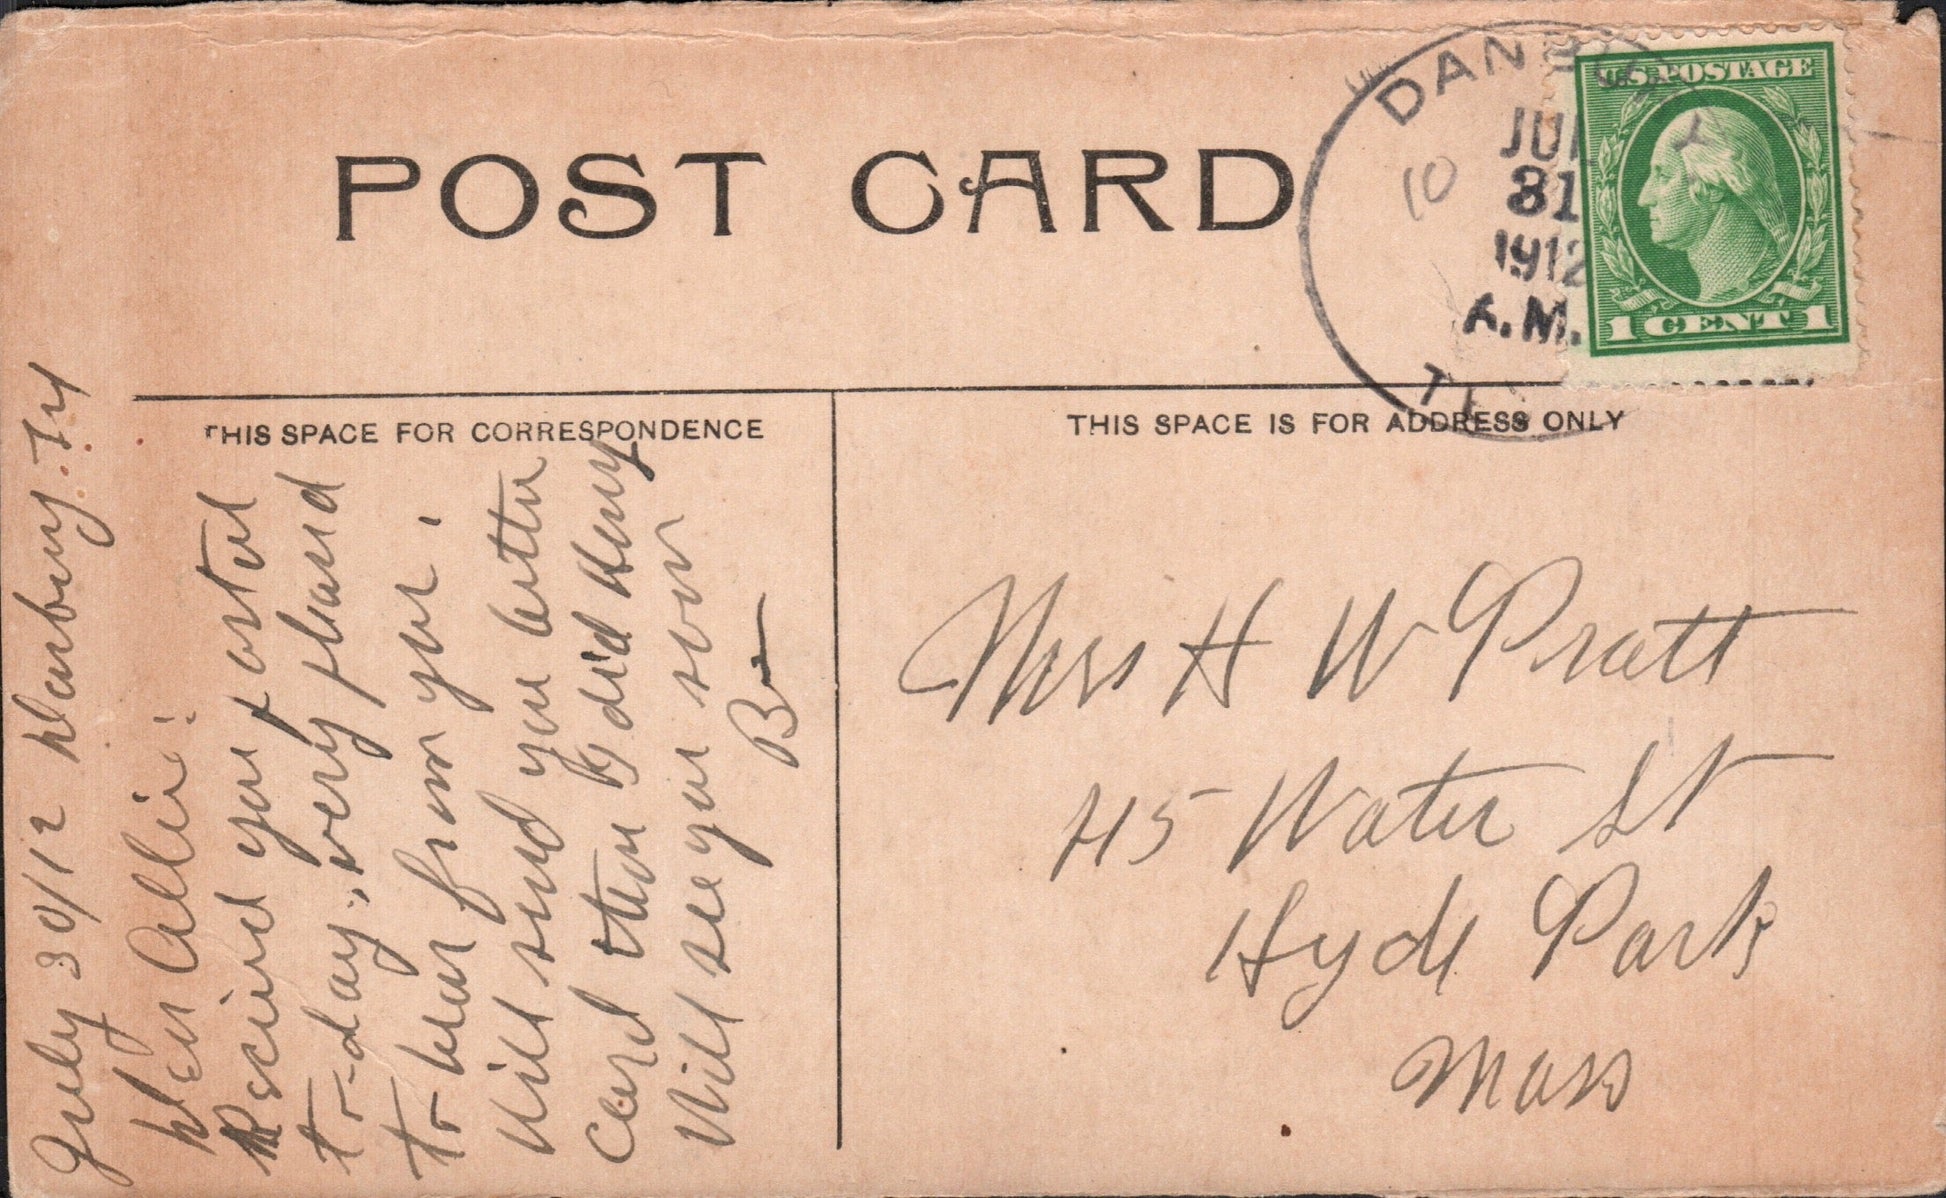 POST CARD
DANBURY
JUL
31
1912
A.M.
TEX
10
U.S. POSTAGE
1 CENT 1
THIS SPACE FOR CORRESPONDENCE
THIS SPACE IS FOR ADDRESS ONLY
July 30/12 Danbury. Tx
Dear Allie:
Recived you postel
to-day, very pleasd
to hear from you.
Will send you letter
Card then did Henry
Will see you soon
B
Mrs H W Pratt
45 Water St
Hyde Park
Mass